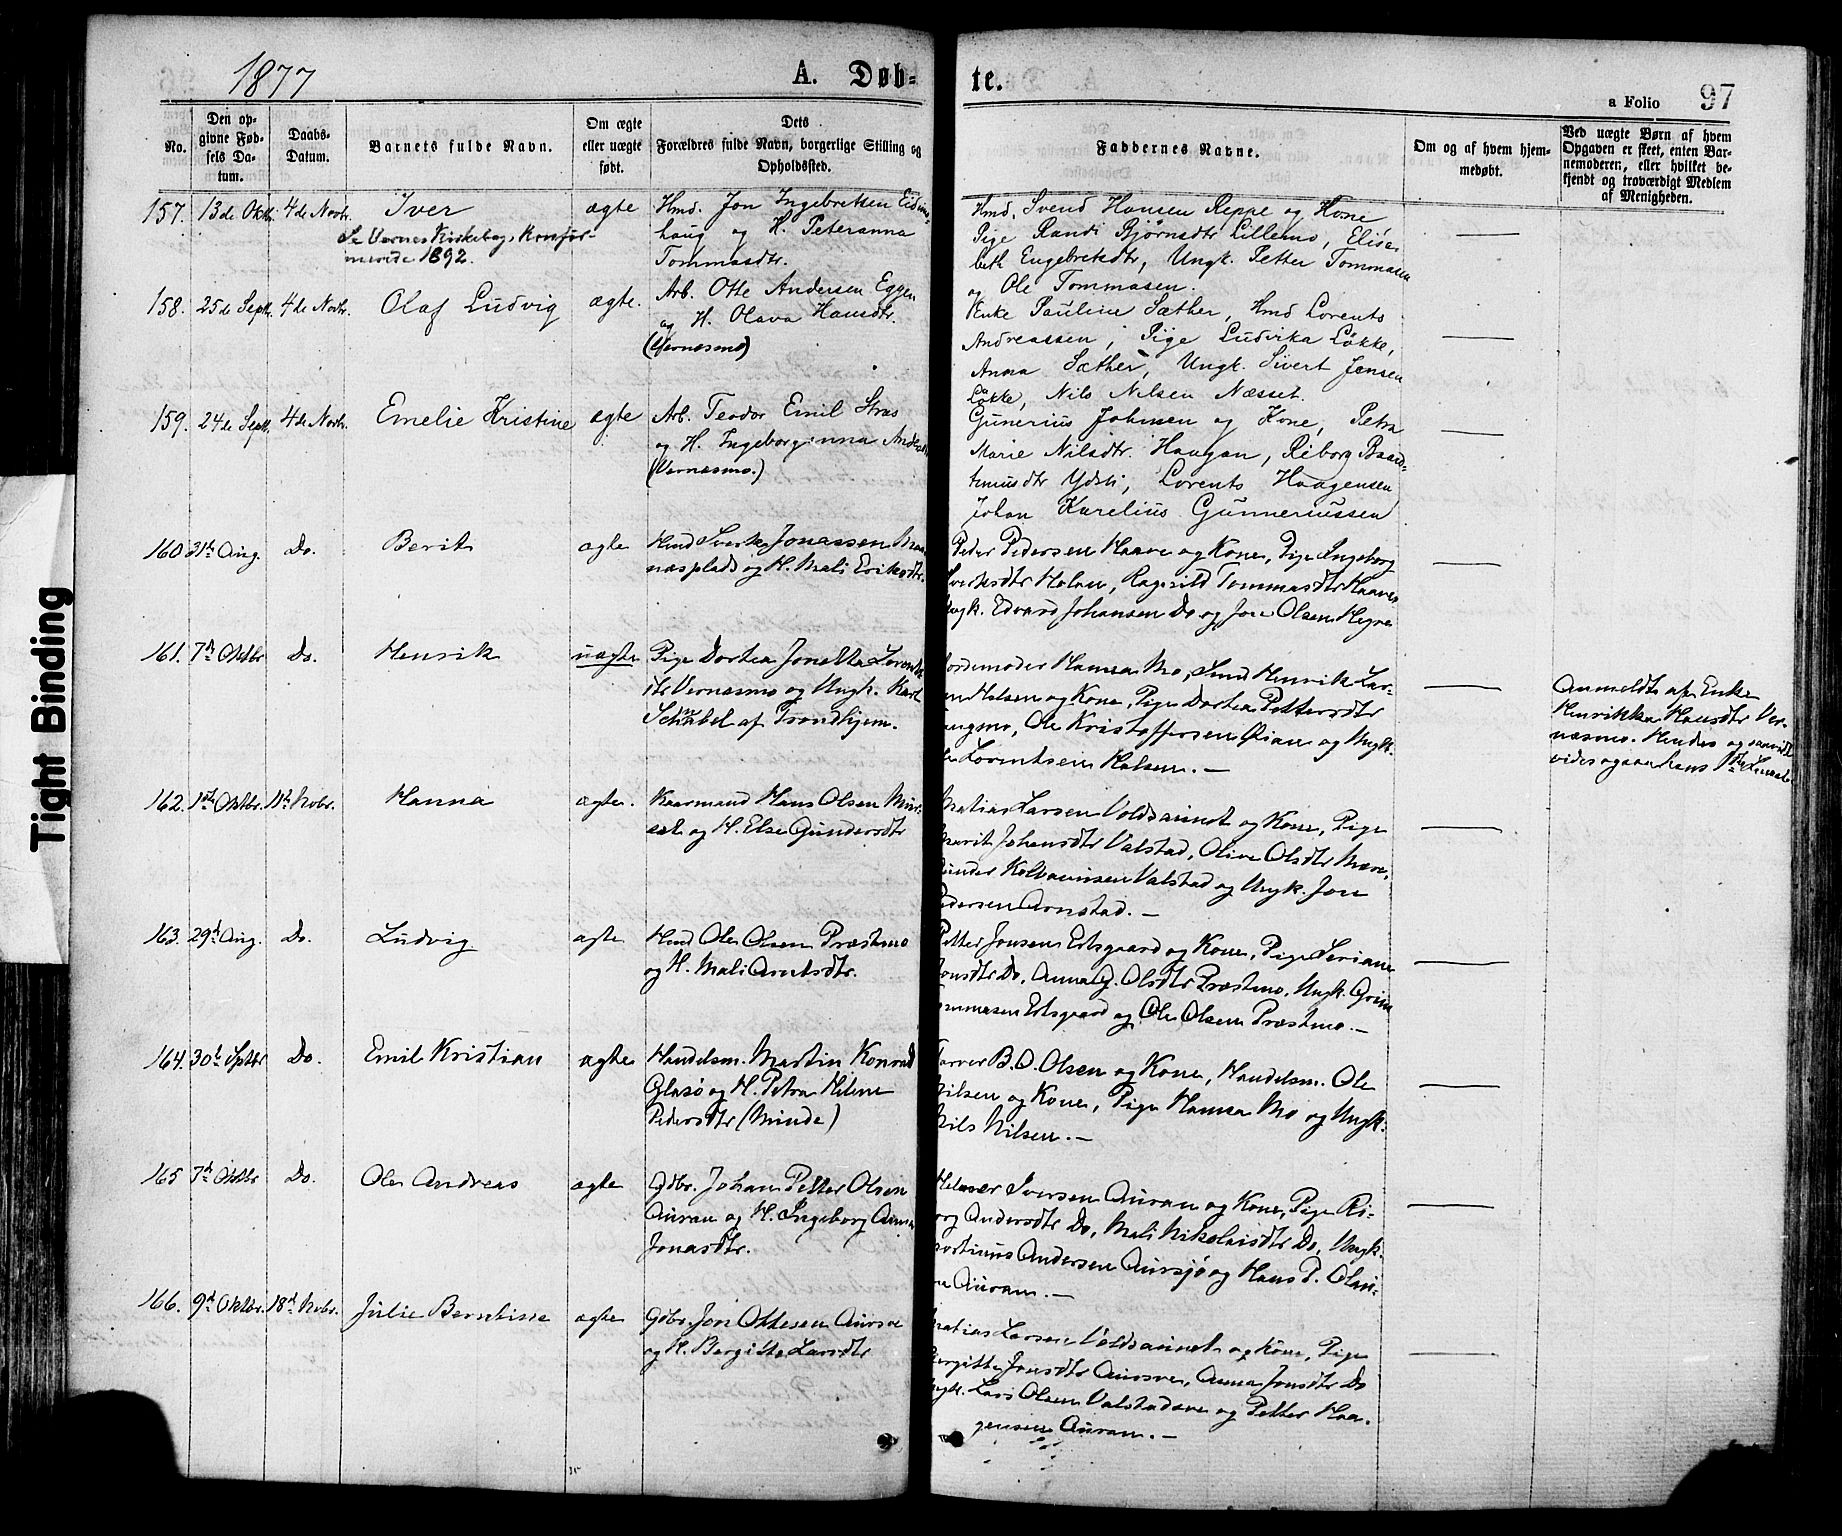 1877
A. Døb-
te.
a Folio 97
No.
Den op-
givne Fød-
sels Da-
tum.
Daabs-
Datum.
Barnets fulde Navn.
Om ægte
eller uægte
født.
Dets
Forældres fulde Navn, borgerlige Stilling og
Opholdssted.
Faddernes Navne.
Om og af hvem hjem-
medøbt.
Ved uægte Børn af hvem
Opgaven er skeet, enten Bar-
nemoderen, eller hvilket be-
kjendt og troværdigt Medlem
af Menigheden.
157. 13de Oktr. 4de Novbr. Iver ægte
Se Værnes Kirkebog, Konfir-
merede 1892.
Hmd. Jon Ingebretsen
haug og H. Peteranna
Tommasdtr.
Hmd. Svend Hansen Reppe og Kone
Pige Randi Bjørnsdtr Lillemo, Elisa-
beth Engebretsdtr, Ungk. Petter Tommasen
og Ole Tommasen.
158. 25de Septr. 4de Novbr. Olaf Ludvig ægte.
Arb. Otte Andersen Eggen
og H. Olava Hansdtr.
(Værnesmo)
Enke Pauline Sæther, Hmd Lorents
Andreassen, Pige Ludvika Løkke,
Anna Sæther, Ungk. Sivert Jensen
Løkke, Nils Nilsen Næsset.
159. 24de Septr. 4de Novbr. Emelie Kristine ægte
Arb. Teodor Emil
og H. Ingeborganna
(Værnesmo.)
Gunerius Johnsen og Kone, Petra
Marie Nilsdtr. Haugan, Riborg
Lorents Haagensen
Johan Karelius Gunneriussen
160. 31te Aug. Do. Berit ægte
Hmd Sverke Jonassen
næsplads og H. Mali Eriksdtr.
Peder Pedersen Haave og Kone, Pige Ingeborg
Sverksdtr Holan, Ragnild Tommasdtr Haave
Ungk. Edvard Johansen Do og Jon Olsen Hegre
161. 7de Oktbr Do. Henrik uægte
Pige Dortea Jonetta
dtr Værnesmo og Ungk. Karl
Schnabel af Trondhjem.
Jordemoder Hansa Mo, Smed Henrik Lar-
sen Halsen og Kone, Pige Dortea Pettersdtr
Ole Kristoffersen Øian og Ungk.
Lorentsen Halsen. —
Anmeldt af Enke
Henrikka Hansdtr Vær-
næsmo. Hendes og saavidt
vides ogsaa hans 1ste
162. 1ste Oktbr. 11te Novbr. Hanna ægte.
Kaarmand Hans Olsen
og H. Else Gundersdtr
Matias Larsen Voldsaunet og Kone, Pige
Marit Johansdtr Valstad, Olive Olsdtr
Gunder Kolbeinsen Valstad og Ungk. Jon
Pedersen Arnstad. —
163. 29de Aug. Do. Ludvig ægte
Hmd Ole Olsen Præstmo
og H. Mali Arntsdtr.
Petter Jonsen Ertsgaard og Kone, Pige Seriane
Jonsdtr Do, Anna G. Olsdtr Præstmo, Ungk.
Tommasen Ertsgaard og Ole Olsen Præstmo. —
164. 30te Septbr Do. Emil Kristian ægte
Handelsm. Martin Konrad
Glasø og H. Petra Helene
Pedersdtr (Minde)
Garver B. O. Olsen og Kone, Handelsm. Ole
Nilsen og Kone, Pige Hansa Mo og Ungk.
Nils Nilsen. —
165 7de Oktbr Do. Ole Andreas ægte
Gdbr. Johan Petter Olsen
Auran og H. Ingeborg Anna
Jonasdtr.
Helmer Iversen Auran og Kone, Pige Ri-
borg Andersdtr Do, Mali Nikolaisdtr Do, Ungk.
Martinus Andersen Aursjø og Hans P.
Auran. —
166. 9de Oktbr. 18de Novbr. Julie Berntine ægte
Gdbr. Jon Ottesen
og H. Bergitte Larsdtr
Matias Larsen Voldsaunet og Kone, Pige
Bergitte Jonsdtr Anna Jonsdtr Do
Ungk. Lars Olsen og Petter Haa-
gensen Auran. —
Tight Binding